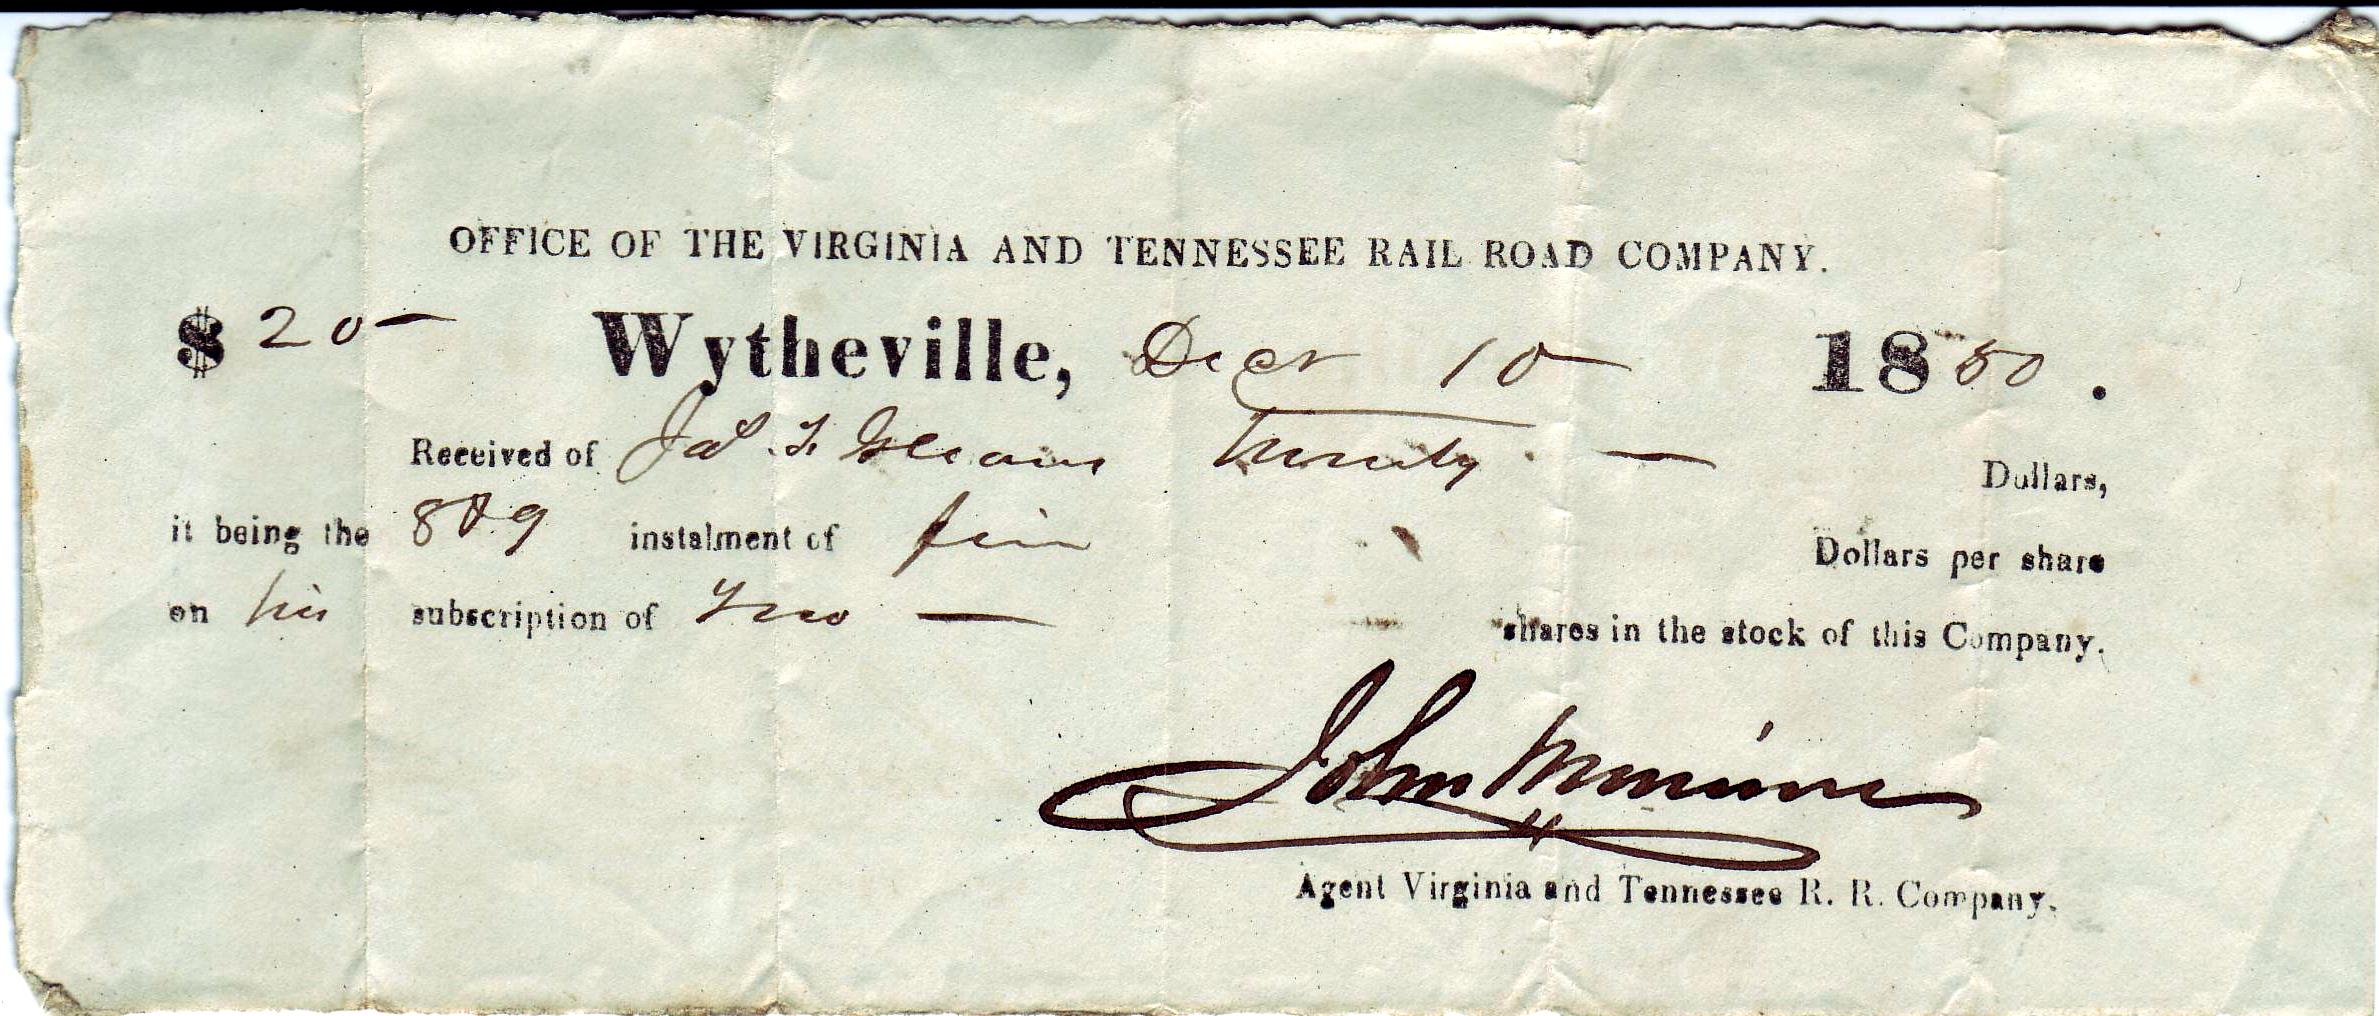 OFFICE OF THE VIRGINIA AND TENNESSEE RAIL ROAD COMPANY.
$ 20 — Wytheville, Decr 10 — 1850.
Received of Jas. F. Twenty — Dollars,
it being the 8 & 9 instalment of five Dollars per share
on his subscription of Two — shares in the stock of this Company.
John
Agent Virginia and Tennessee R. R. Company.